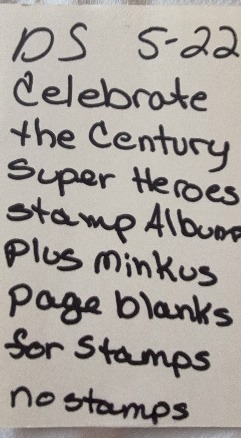 DS 5-22
Celebrate
the Century
Super Heroes
Stamp Album
Plus Minkus
Page blanks
for Stamps
no stamps